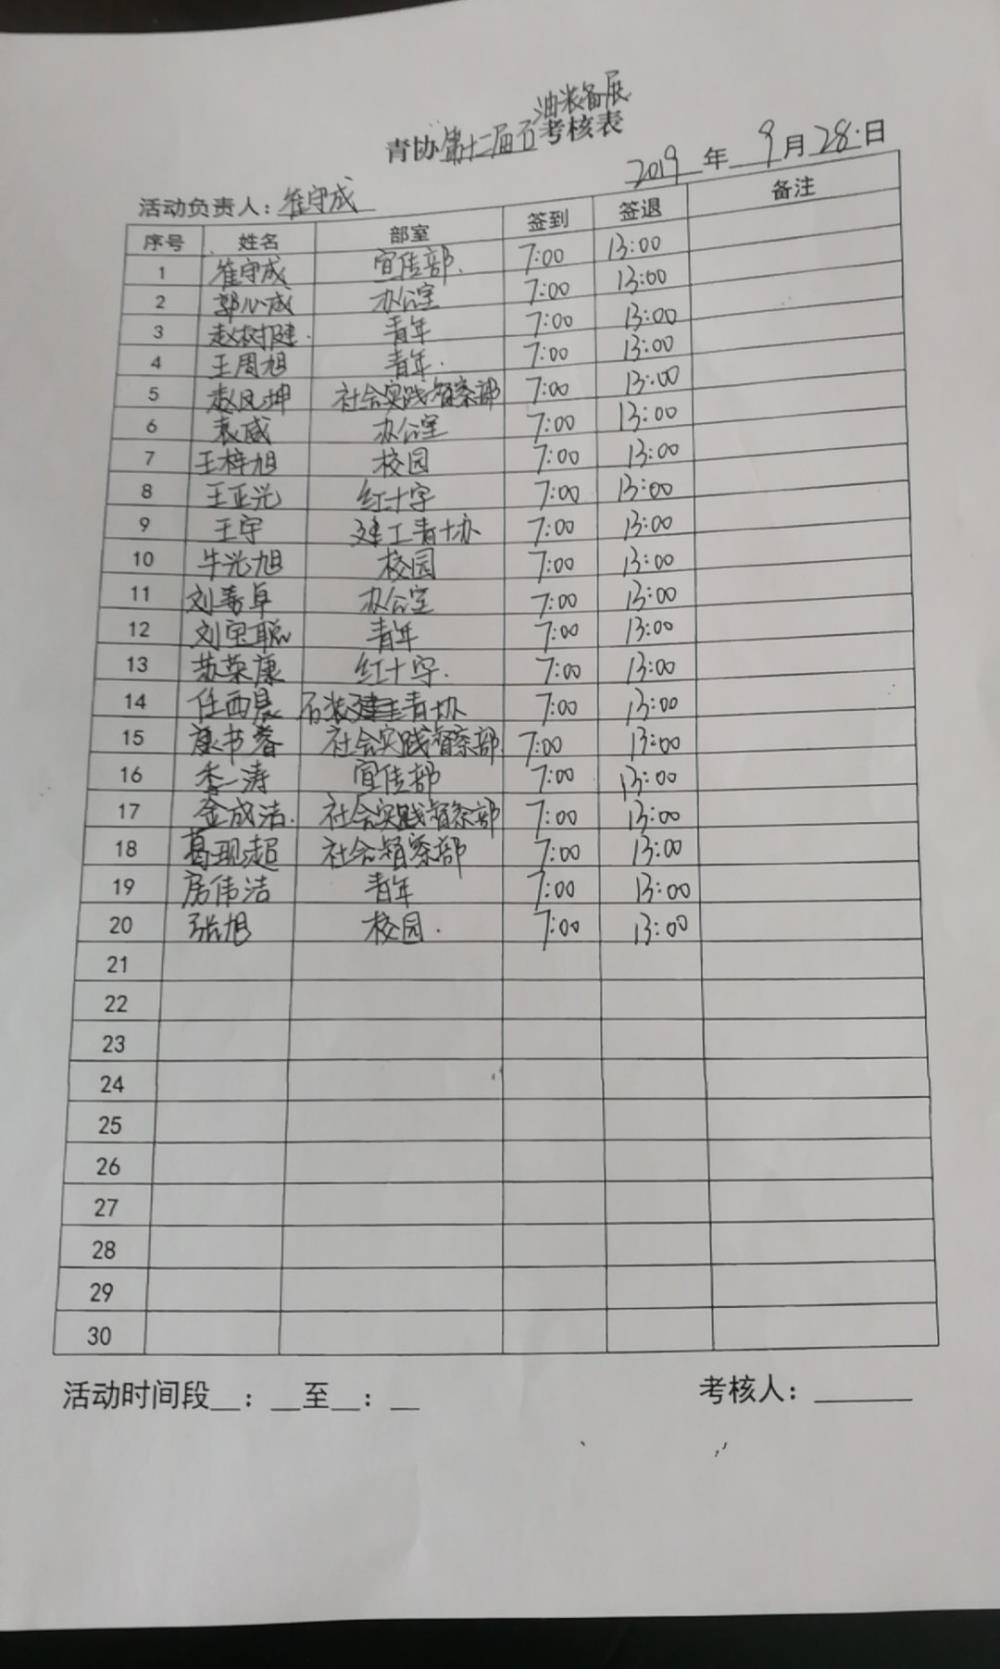 油装备展
青协第十二届石考核表
2019年9月28日
活动负责人：崔守成
序号 姓名 部室 签到 签退 备注
1 崔守成 宣传部 7:00 13:00
2 郭心成 办公室 7:00 13:00
3 赵树建 青年 7:00 13:00
4 王周旭 青年 7:00 13:00
5 赵凤坤 社会实践督察部 7:00 13:00
6 袁威 办公室 7:00 13:00
7 王梓旭 校园 7:00 13:00
8 王亚光 红十字 7:00 13:00
9 王宇 建工青协 7:00 13:00
10 牛光旭 校园 7:00 13:00
11 刘春卓 办公室 7:00 13:00
12 刘宝聪 青年 7:00 13:00
13 苏荣康 红十字 7:00 13:00
14 任西晨 石装青协 7:00 13:00
15 康书睿 社会实践督察部 7:00 13:00
16 李一涛 宣传部 7:00 13:00
17 金成洁 社会实践督察部 7:00 13:00
18 葛现超 社会督察部 7:00 13:00
19 房伟洁 青年 7:00 13:00
20 张旭 校园 7:00 13:00
21
22
23
24
25
26
27
28
29
30
活动时间段__：__至__：__ 考核人：______